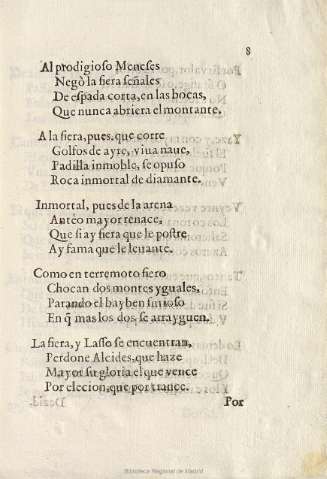 8
Al prodigioso Meneses
Negò la fiera señales
De espada corta, en las bocas,
Que nunca abriera el montante.
A la fiera, pues, que corre
Golfos de ayre, viua naue,
Padilla inmoble, se opuso
Roca inmortal de diamante.
Inmortal, pues de la arena
Antèo mayor renace,
Que si ay fiera que le postre
Ay fama que le leuante.
Como en terremoto fiero
Chocan dos montes yguales,
Parando el bayben
En q̃ mas los dos se arrayguen.
La fiera, y Lasso se encuentran,
Perdone Alcides, que haze
Mayor su gloria el que vence
Por elecion, que por trance.
Por
Biblioteca Regional de Madrid